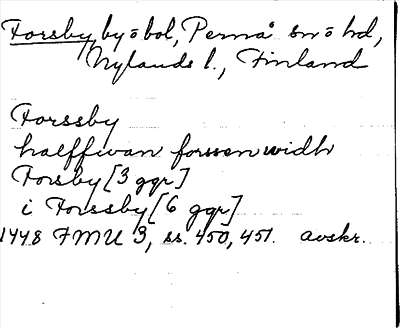 Forsby by o bol, Pernå sn o hd,
Nylands l., Finland
Forssby
halffwan forssen widh
Forsby [3 ggr]
i Forssby [6 ggr]
1448 FMU 3, ss. 450, 451. avskr.